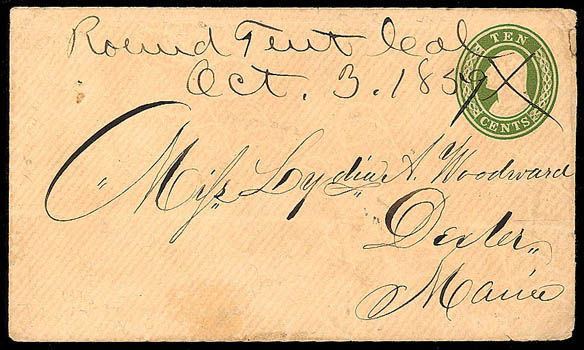 Round Tent Cal
Oct. 3. 1859
TEN
CENTS
Miss Lydia A. Woodward
Dexter,
Maine